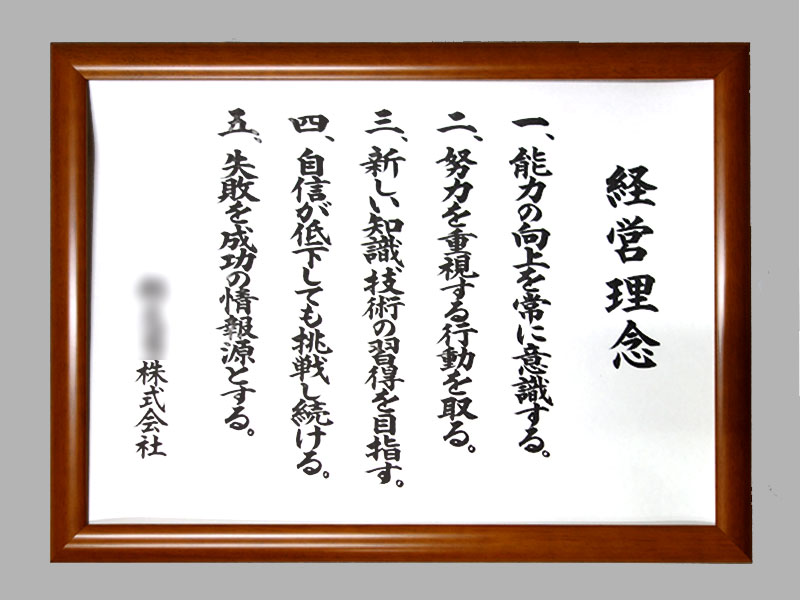 経営理念
一、能力の向上を常に意識する。
二、努力を重視する行動を取る。
三、新しい知識、技術の習得を目指す。
四、自信が低下しても挑戦し続ける。
五、失敗を成功の情報源とする。
株式会社